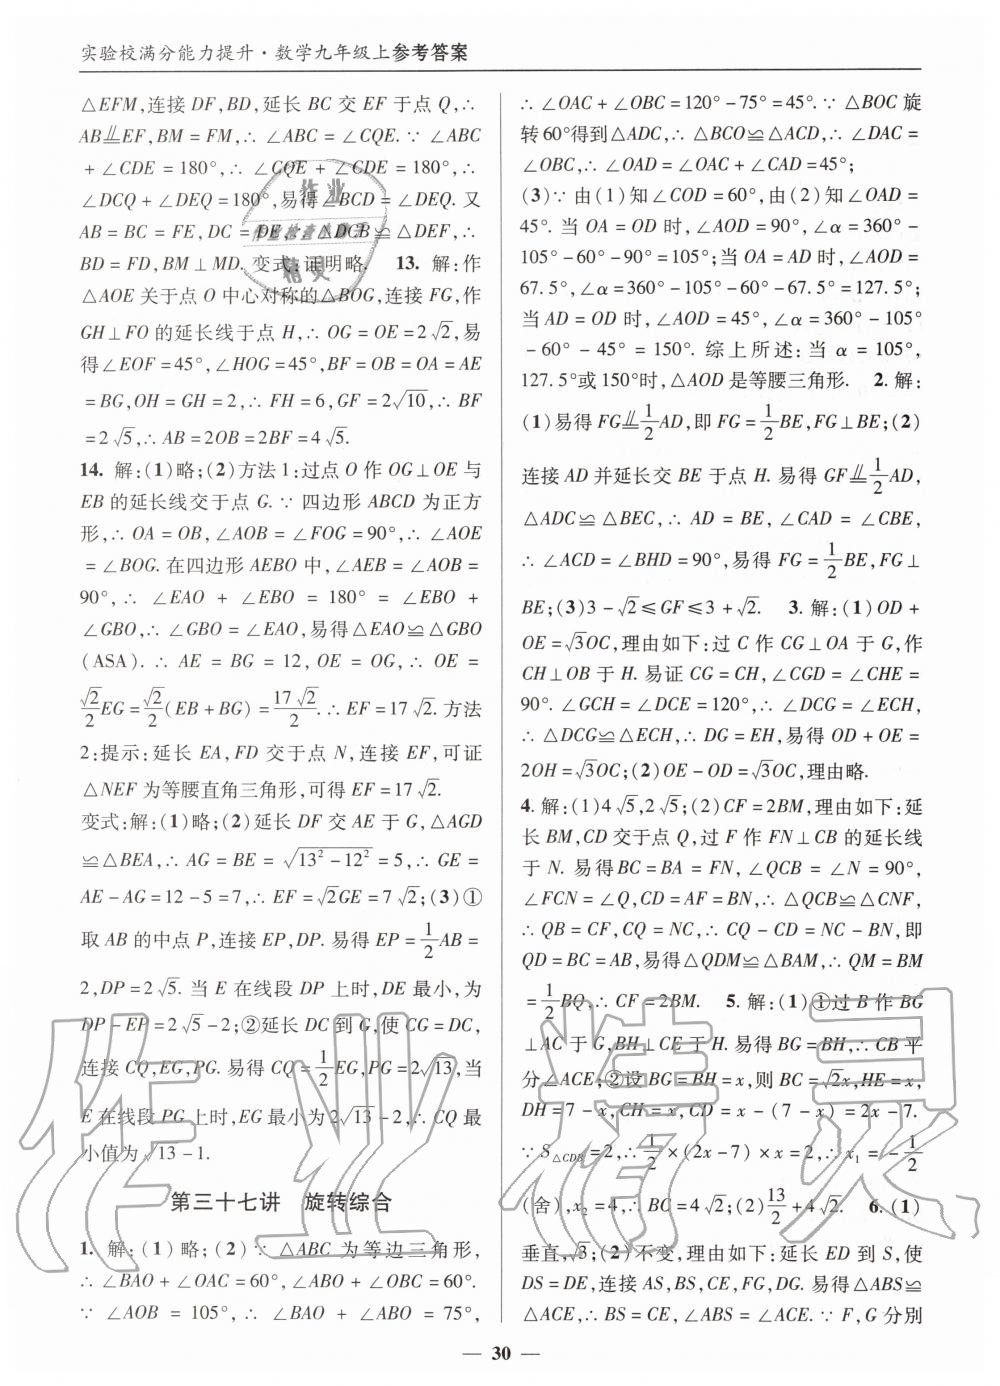 实验校满分能力提升·数学九年级上参考答案
△EFM,连接 DF,BD,延长 BC 交 EF 于点 Q,∴
AB⫽EF,BM = FM,∴ ∠ABC = ∠CQE. ∵ ∠ABC
+ ∠CDE = 180°,∴ ∠CQE + ∠CDE = 180°,∴
∠DCQ + ∠DEQ = 180°,易得∠BCD = ∠DEQ. 又
AB = BC = FE, DC = DE,∴ △DCB≌△DEF,∴
BD = FD,BM ⊥ MD. 变式:证明略. 13. 解:作
△AOE 关于点 O 中心对称的△BOG,连接 FG,作
GH⊥FO 的延长线于点 H,∴ OG = OE = 2√2,易
得∠EOF = 45°,∠HOG = 45°,BF = OB = OA = AE
= BG,OH = GH = 2,∴ FH = 6,GF = 2√10,∴ BF
= 2√5,∴ AB = 2OB = 2BF = 4√5.
14. 解:(1)略;(2)方法1:过点 O 作 OG⊥OE 与
EB 的延长线交于点 G. ∵ 四边形 ABCD 为正方
形,∴ OA = OB,∠AOB = ∠FOG = 90°,∴ ∠AOE
= ∠BOG. 在四边形 AEBO 中,∠AEB = ∠AOB =
90°,∴ ∠EAO + ∠EBO = 180° = ∠EBO +
∠GBO,∴ ∠GBO = ∠EAO,易得△EAO≌△GBO
(ASA). ∴ AE = BG = 12,OE = OG,∴ OE =
√2/2 EG = √2/2 (EB + BG) = 17√2/2. ∴ EF = 17√2. 方法
2:提示:延长 EA,FD 交于点 N,连接 EF,可证
△NEF 为等腰直角三角形,可得 EF = 17√2.
变式:解:(1)略;(2)延长 DF 交 AE 于 G,△AGD
≌△BEA,∴ AG = BE = √(13² - 12²) = 5,∴ GE =
AE - AG = 12 - 5 = 7,∴ EF = √2GE = 7√2;(3)①
取 AB 的中点 P,连接 EP,DP. 易得 EP = 1/2 AB =
2,DP = 2√5. 当 E 在线段 DP 上时,DE 最小,为
DP - EP = 2√5 - 2;②延长 DC 到 G,使 CG = DC,
连接 CQ,EG,PG. 易得 CQ = 1/2 EG,PG = 2√13,当
E 在线段 PG 上时,EG 最小为 2√13 - 2,∴ CQ 最
小值为 √13 - 1.
第三十七讲 旋转综合
1. 解:(1)略;(2) ∵ △ABC 为等边三角形,
∴ ∠BAO + ∠OAC = 60°,∠ABO + ∠OBC = 60°.
∵ ∠AOB = 105°,∴ ∠BAO + ∠ABO = 75°,
∴ ∠OAC + ∠OBC = 120° - 75° = 45°. ∵ △BOC 旋
转60°得到△ADC,∴ △BCO≌△ACD,∴ ∠DAC =
∠OBC,∴ ∠OAD = ∠OAC + ∠CAD = 45°;
(3)∵ 由(1)知∠COD = 60°,由(2)知∠OAD =
45°. 当 OA = OD 时,∠AOD = 90°,∠α = 360° -
105° - 60° - 90° = 105°;当 OA = AD 时,∠AOD =
67.5°,∠α = 360° - 105° - 60° - 67.5° = 127.5°;
当 AD = OD 时,∠AOD = 45°,∠α = 360° - 105°
- 60° - 45° = 150°. 综上所述:当 α = 105°,
127.5°或 150°时,△AOD 是等腰三角形. 2. 解:
(1)易得 FG⫽1/2 AD,即 FG = 1/2 BE,FG⊥BE;(2)
连接 AD 并延长交 BE 于点 H. 易得 GF⫽1/2 AD,
△ADC≌△BEC,∴ AD = BE,∠CAD = ∠CBE,
∴ ∠ACD = ∠BHD = 90°,易得 FG = 1/2 BE,FG⊥
BE;(3)3 - √2≤GF≤3 + √2. 3. 解:(1)OD +
OE = √3OC,理由如下:过 C 作 CG⊥OA 于 G,作
CH⊥OB 于 H. 易证 CG = CH,∠CGD = ∠CHE =
90°. ∠GCH = ∠DCE = 120°,∴ ∠DCG = ∠ECH,
∴ △DCG≌△ECH,∴ DG = EH,易得 OD + OE =
2OH = √3OC;(2)OE - OD = √3OC,理由略.
4. 解:(1)4√5,2√5;(2)CF = 2BM,理由如下:延
长 BM,CD 交于点 Q,过 F 作 FN⊥CB 的延长线
于 N. 易得 BC = BA = FN,∠QCB = ∠N = 90°,
∠FCN = ∠Q,CD = AF = BN,∴ △QCB≌△CNF,
∴ QB = CF,CQ = NC,∴ CQ - CD = NC - BN,即
QD = BC = AB,易得△QDM≌△BAM,∴ QM = BM
= 1/2 BQ,∴ CF = 2BM. 5. 解:(1)①过 B 作 BG
⊥AC 于 G,BH⊥CE 于 H. 易得 BG = BH,∴ CB 平
分∠ACE;②设 BG = BH = x,则 BC = √2x,HE = x,
DH = 7 - x,CH = x,CD = x - (7 - x) = 2x - 7.
∵ S△CDB = 2,∴ 1/2 × (2x - 7) × x = 2,∴ x₁ = - 1/2
(舍),x₂ = 4,∴ BC = 4√2;(2)13/2 + 4√2. 6. (1)
垂直,√3;(2)不变,理由如下:延长 ED 到 S,使
DS = DE,连接 AS,BS,CE,FG,DG. 易得△ABS≌
△ACE,∴ BS = CE,∠ABS = ∠ACE. ∵ F,G 分别
— 30 —
作业精灵